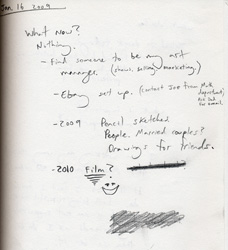 Jan 16 2009
What Now?
Nothing.
- Find someone to be my art
manager. (shows, selling, marketing.)
- Ebay set up. (contact Joe from Math
department)
- 2009 Pencil sketches.
People. Married couples?
Drawings for friends.
- 2010 Film?